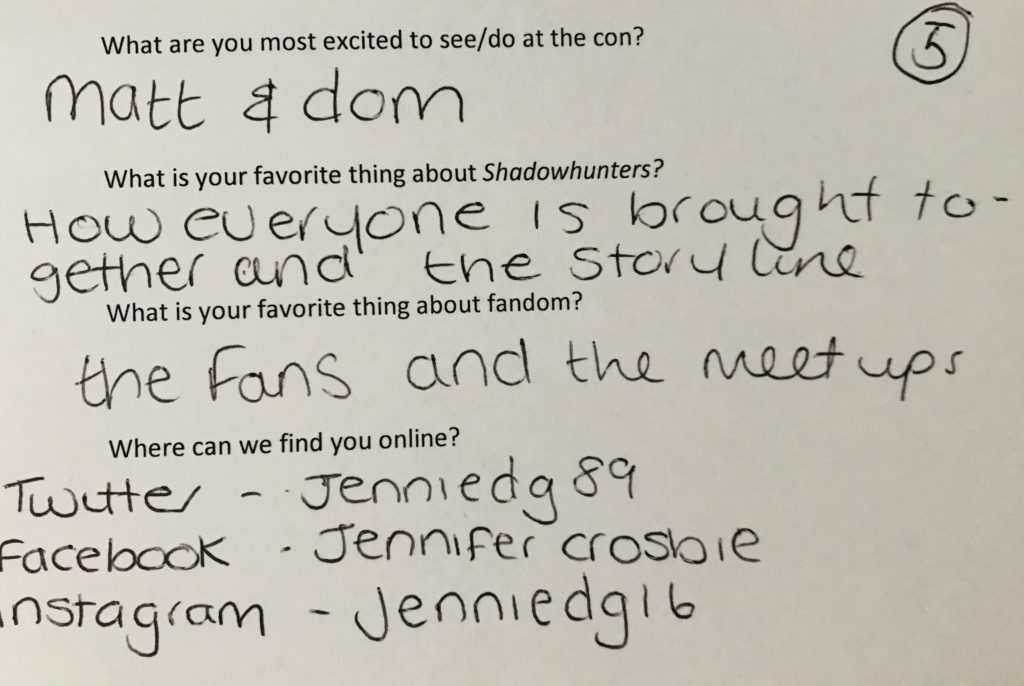 What are you most excited to see/do at the con?
5
Matt & dom
What is your favorite thing about Shadowhunters?
How everyone is brought to-
gether and the story line
What is your favorite thing about fandom?
the Fans and the meet ups
Where can we find you online?
Twitter - Jenniedg89
Facebook - Jennifer crosbie
instagram - Jenniedg16